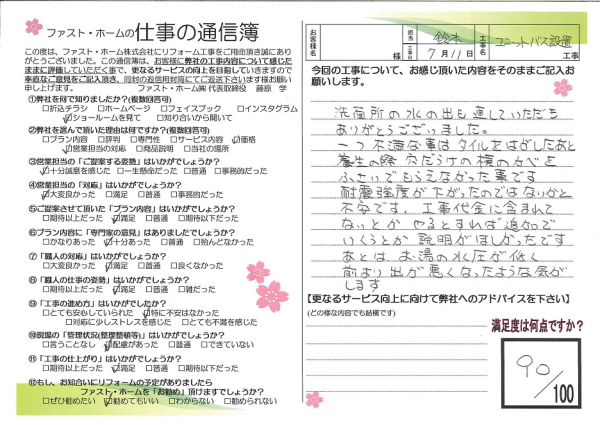 ファスト・ホームの仕事の通信簿
この度は、ファスト・ホーム株式会社にリフォーム工事をご用命頂き誠にあり
がとうございました。この通信簿は、お客様に弊社の工事内容について感じた
ままに評価していただく事で、更なるサービスの向上を目指していきますので
率直なご意見をご記入頂き、同封の返信用封筒にてご返送下さいます様お願い
申し上げます。
ファスト・ホーム㈱ 代表取締役 藤原 学
①弊社を何で知りましたか?(複数回答可)
□折込チラシ □ホームページ □フェイスブック □インスタグラム
☑ショールームを見て □知り合いから聞いて
②弊社を選んで頂いた理由は何ですか?(複数回答可)
□プラン内容 □評判 □専門性 □サービス内容 ☑価格
☑営業担当の対応 □商品説明 □当社の場所
③営業担当の「ご提案する姿勢」はいかがでしょうか?
☑十分誠意を感じた □一生懸命だった □普通 □事務的だった
④営業担当の「対応」はいかがでしょうか?
☑大変良かった □満足 □普通 □事務的だった
⑤ご提案させて頂いた「プラン内容」はいかがでしょうか?
□期待以上だった ☑満足 □期待以下だった
⑥プラン内容に「専門家の意見」はありましたでしょうか?
□かなりあった ☑十分あった □普通 □殆んどなかった
⑦「職人の対応」はいかがでしょうか?
□大変良かった ☑満足 □普通 □良くなかった
⑧「職人の仕事の姿勢」はいかがでしょうか?
□期待以上だった ☑満足 □普通 □雑だった
⑨「工事の進め方」はいかがでしたでしょうか?
□とても安心していられた ☑特に不安はなかった
□対応に少しストレスを感じた □とても不満を感じた
⑩現場の「管理状況(整理整頓等)」はいかがでしょうか?
□言うことなし ☑配慮があった □普通 □できていない
⑪「工事の仕上がり」はいかがでしょうか?
□期待以上だった ☑満足 □普通 □期待以下だった
⑫もし、お知合いにリフォームの予定がありましたら
ファスト・ホームを「お勧め」頂けますでしょうか?
□ぜひ勧めたい ☑勧めてもいい □わからない □勧められない
お客様名
様
担当 鈴木
工事日 7月11日
工事名 ユニットバス設置
工事
今回の工事について、お感じ頂いた内容をそのままご記入お
願いします。
洗面所の水の出も直していただき
ありがとうございました。
一つ不満な事はタイルをはがしたあと
養生の際穴だらけの横のカベを
ふさいでもらえなかった事です
耐震強度が下がったのではないかと
不安です。工事代金に含まれて
ないとか やるとすれば追加で
いくらとか説明がほしかったです
あとはお湯の水圧が低く
前より出が悪くなったような気が
します
【更なるサービス向上に向けて弊社へのアドバイスを下さい】
(どの様な内容でも結構です)
満足度は何点ですか?
90
/100